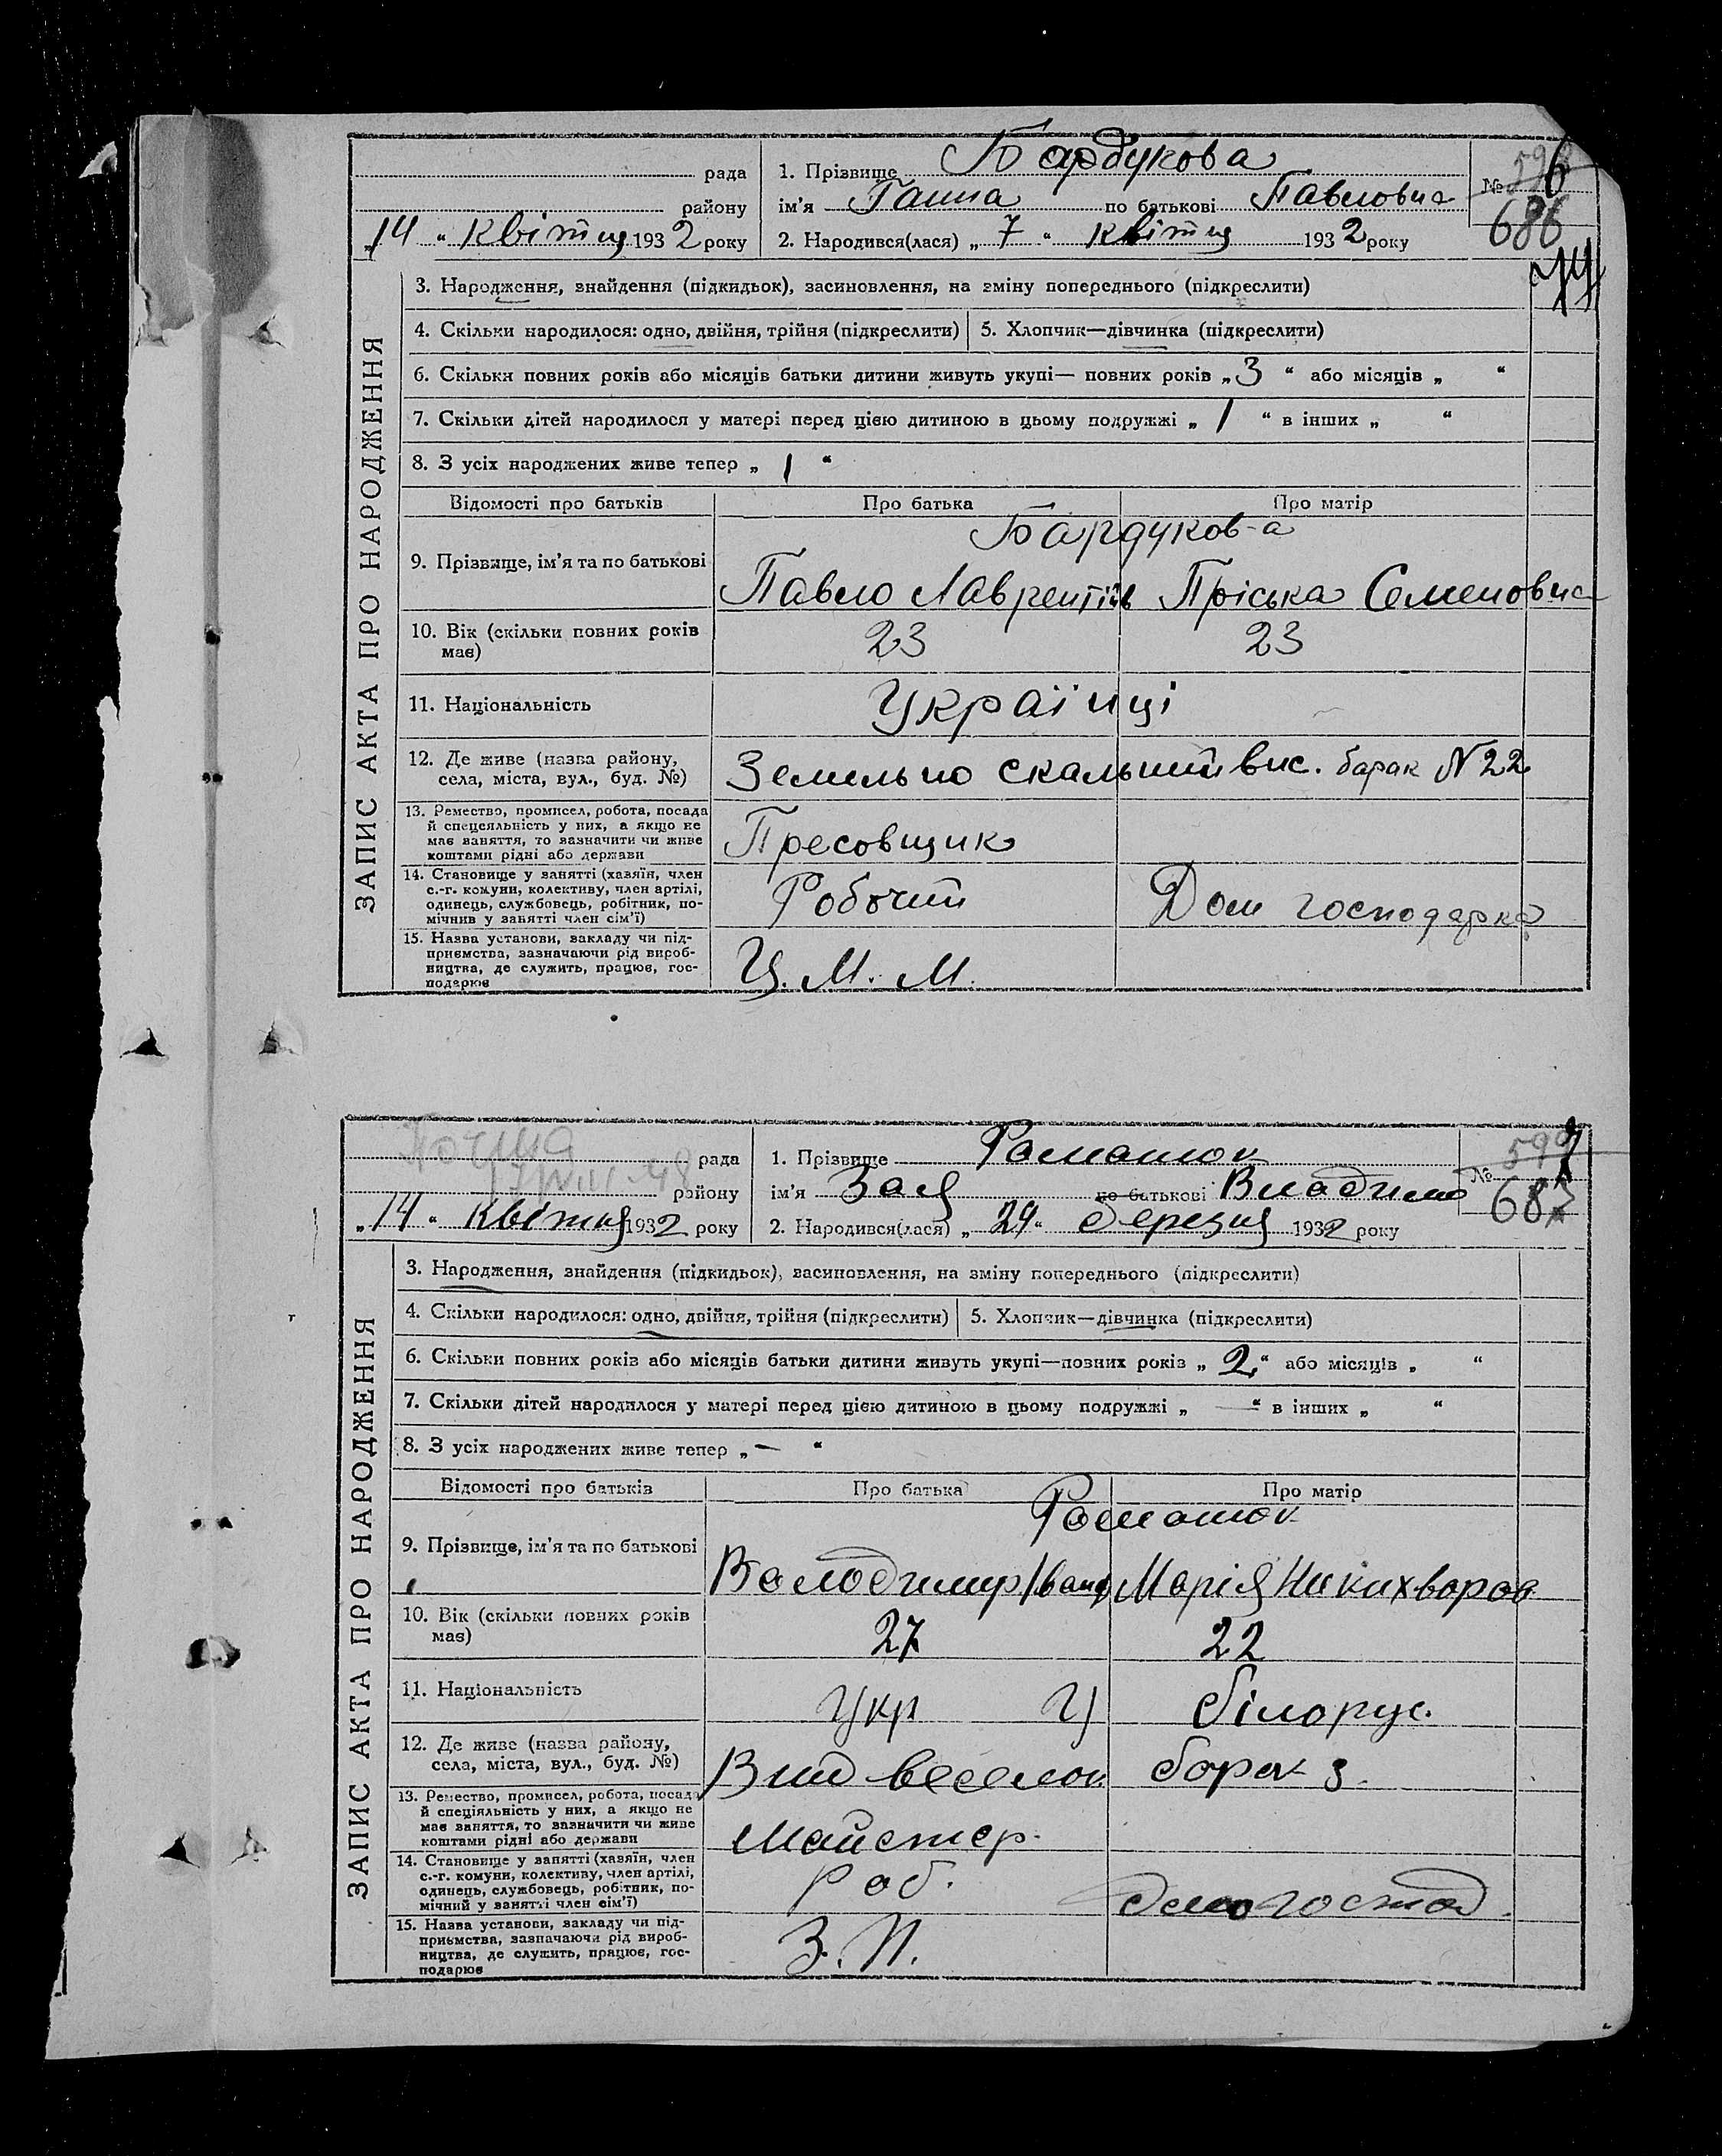 рада
району
„14“ квітня 1932 року
1. Прізвище Бардукова
ім'я Ганна по батькові Павловна
2. Народився(лася) „7“ квітня 1932 року
№ 598 6
686
ЗАПИС АКТА ПРО НАРОДЖЕННЯ
3. Народження, знайдення (підкидьок), засиновлення, на зміну попереднього (підкреслити)
4. Скільки народилося: одно, двійня, трійня (підкреслити) 5. Хлопчик—дівчинка (підкреслити)
6. Скільки повних років або місяців батьки дитини живуть укупі— повних років „3“ або місяців „ “
7. Скільки дітей народилося у матері перед цією дитиною в цьому подружжі „1“ в інших „ “
8. З усіх народжених живе тепер „1“
Відомості про батьків Про батька Про матір
Бардуков-а
9. Прізвище, ім'я та по батькові Павло Лаврентіїв Пріська Семеновна
10. Вік (скільки повних років
має) 23 23
11. Національність Українці
12. Де живе (назва району,
села, міста, вул., буд. №) Земельно скальний вис. барак N 22
13. Ремество, промисел, робота, посада
й спецеяльність у них, а якщо не
має заняття, то зазначити чи живе
коштами рідні або держави Пресовщик
14. Становище у занятті (хазяїн, член
с.-г. комуни, колективу, член артілі,
одинець, службовець, робітник, по-
мічнив у занятті член сім'ї) Робочий Дом господарка
15. Назва установи, закладу чи під-
приємства, зазначаючи рід вироб-
ництва, де служить, працює, гос-
подарює Ц. М. М.
рада
району
„14“ квітня 1932 року
1. Прізвище Ромашок
ім'я Зая по батькові Владимо
2. Народився(лася) „29“ березня 1932 року
№ 599 7
687
ЗАПИС АКТА ПРО НАРОДЖЕННЯ
3. Народження, знайдення (підкидьок), засиновлення, на зміну попереднього (підкреслити)
4. Скільки народилося: одно, двійня, трійня (підкреслити) 5. Хлопчик—дівчинка (підкреслити)
6. Скільки повних років або місяців батьки дитини живуть укупі—повних років „2“ або місяців „ “
7. Скільки дітей народилося у матері перед цією дитиною в цьому подружжі „—“ в інших „ “
8. З усіх народжених живе тепер „—“
Відомості про батьків Про батька Про матір
Ромашок
9. Прізвище, ім'я та по батькові Володимир Іван Марія Никихворов
10. Вік (скільки повних років
має) 27 22
11. Національність Укр У білорус.
12. Де живе (назва району,
села, міста, вул., буд. №) веселой борак 3.
13. Ремество, промисел, робота, посада
й спеціяльність у них, а якщо не
має заняття, то зазначити чи живе
коштами рідні або держави Майстер.
14. Становище у занятті (хазяїн, член
с.-г. комуни, колективу, член артілі,
одинець, службовець, робітник, по-
мічний у занятті член сім'ї) Роб. домогоспод.
15. Назва установи, закладу чи під-
приємства, зазначаючи рід вироб-
ництва, де служить, працює, гос-
подарює З. П.